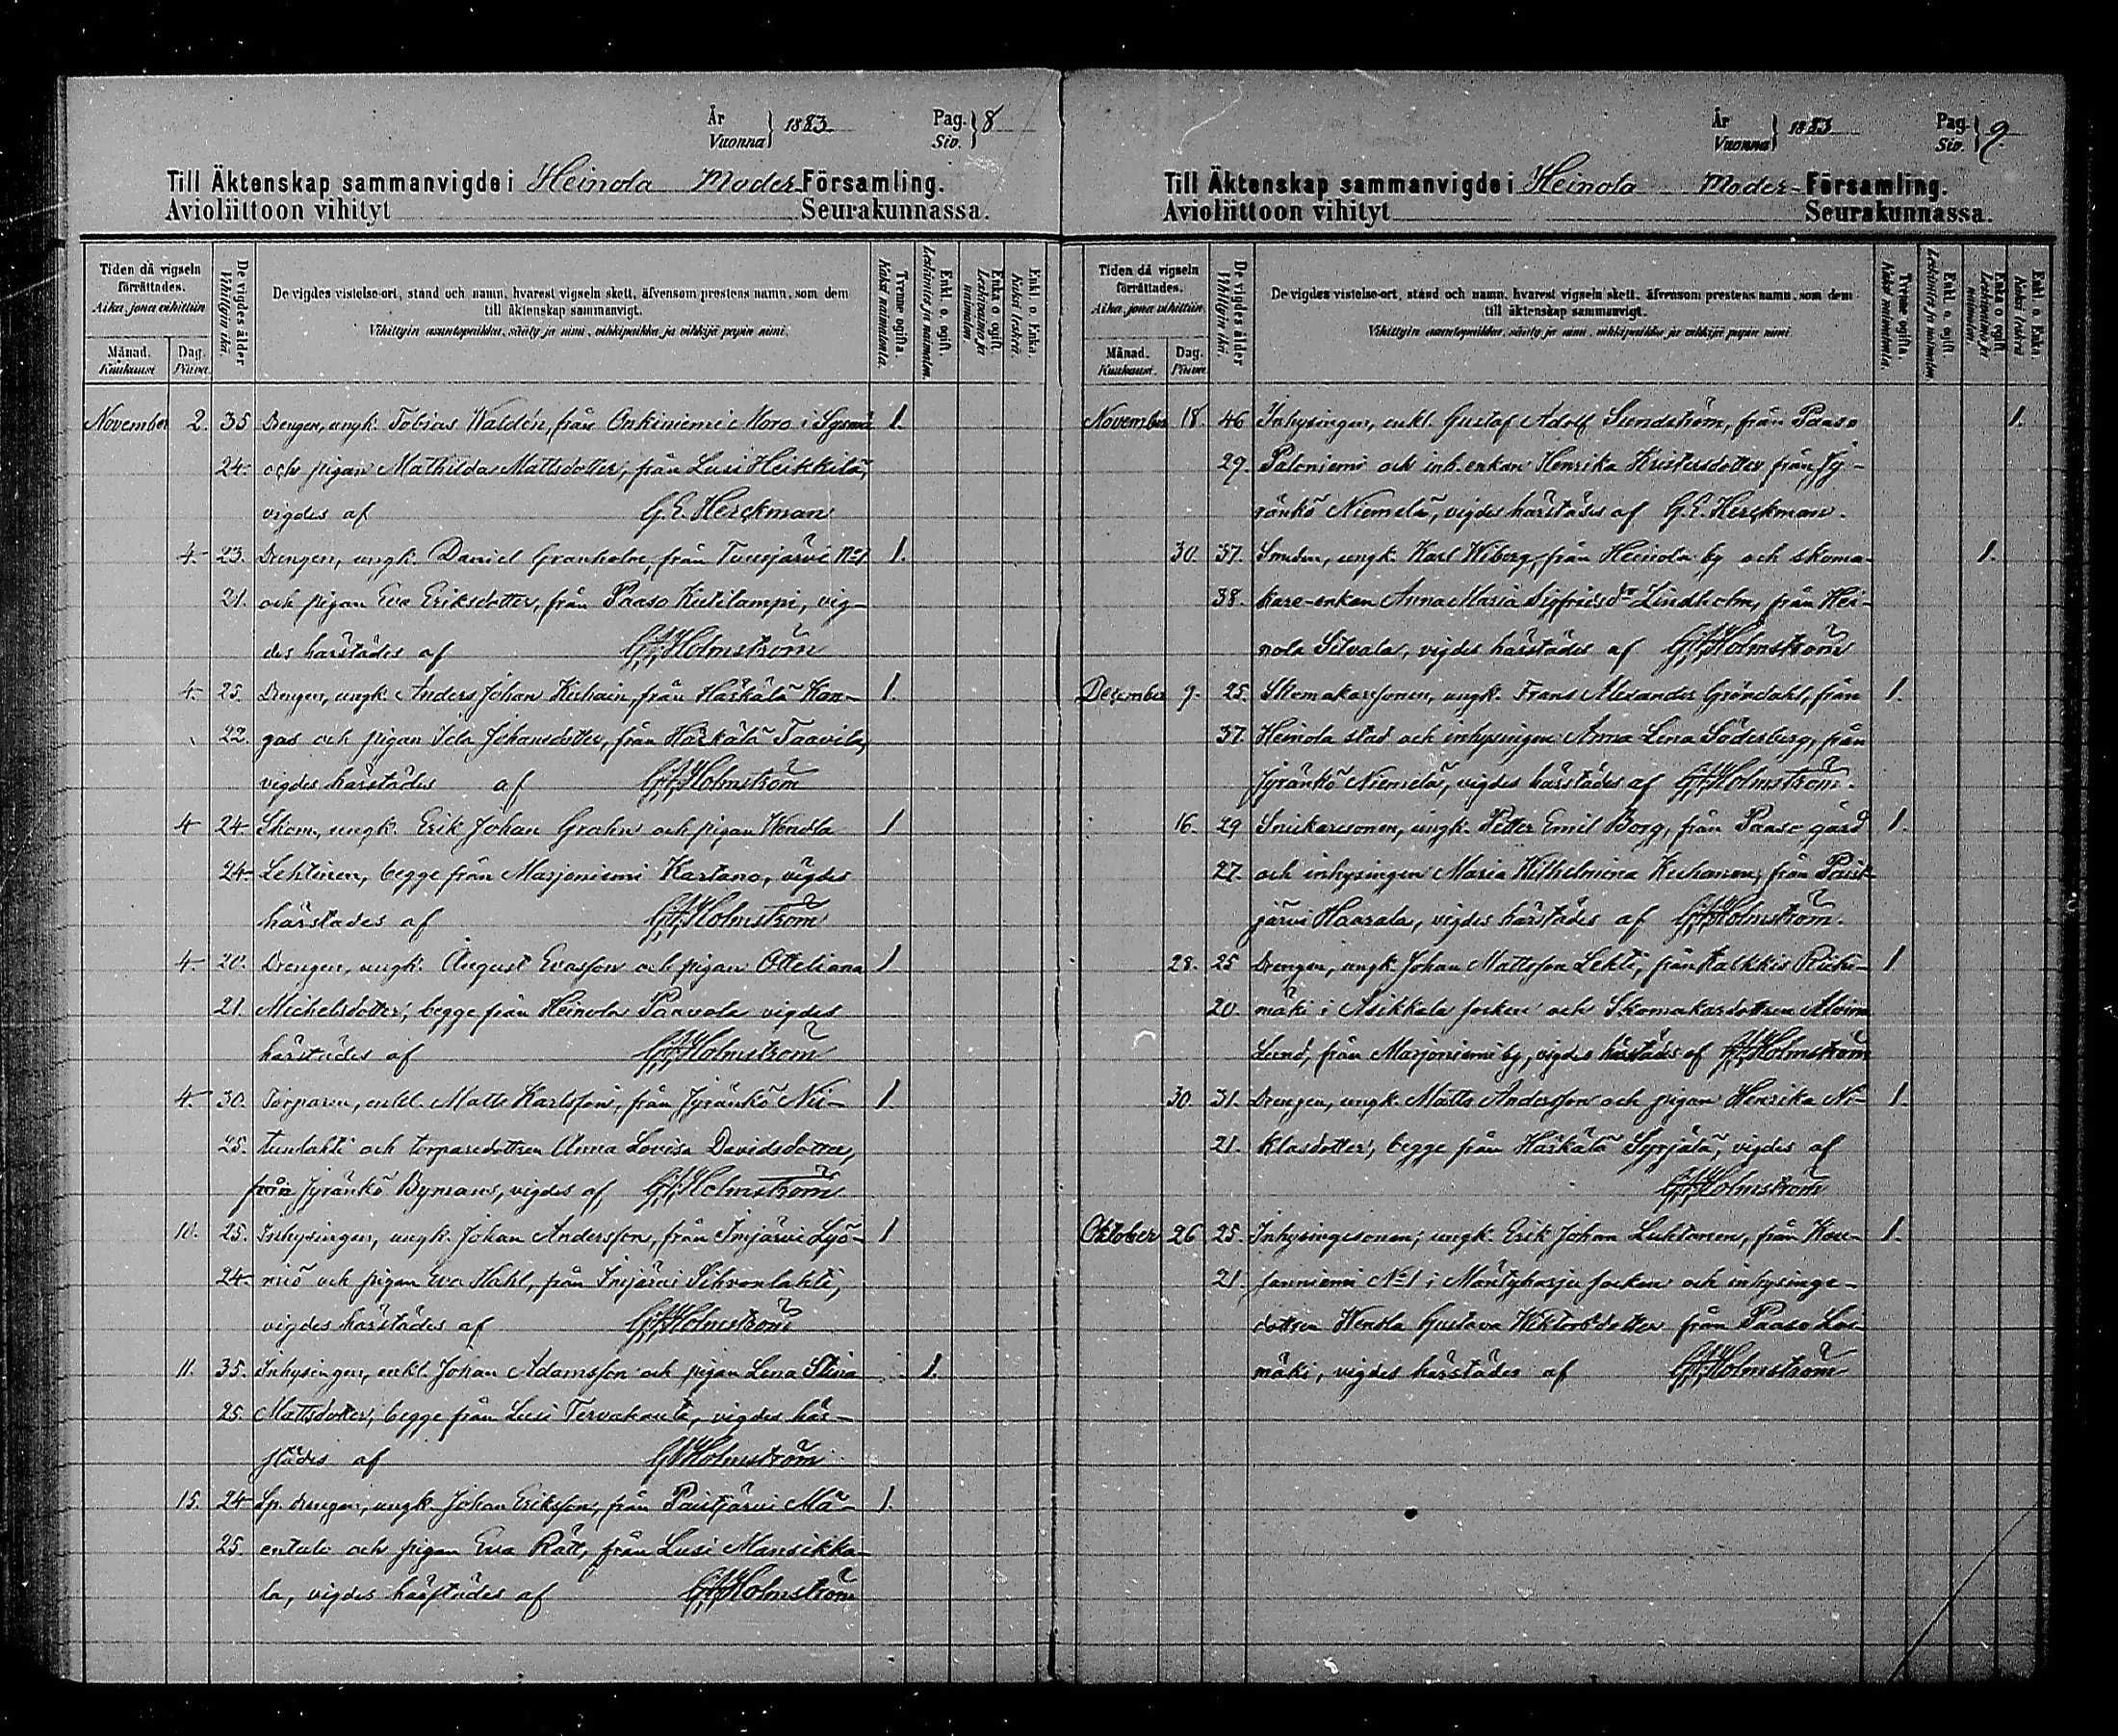 År 1883. Pag. 8
Vuonna Siv.
Till Äktenskap sammanvigde i Heinola Moder Församling.
Avioliittoon vihityt Seurakunnassa.
Tiden då vigseln förrättades.
Aika, jona vihittiin
Månad. Kuukausi
Dag. Päivä.
De vigdes ålder
Vihittyin ikä.
De vigdes vistelse-ort, stånd och namn, hvarest vigseln skett, äfvensom prestens namn, som dem
till äktenskap sammanvigt.
Vihittyin asuntopaikka, sääty ja nimi, vihkipaikka ja vihkijä papin nimi.
Tvenne ogifta.
Kaksi naimatonta.
Enkl. o. ogift.
Leskimies ja naimaton.
Enka o ogift.
Leskivaimo ja naimaton
Enkl. o. Enka
Kaksi leskeä
November 2. 35 Drengen, ungk. Tobias Waldén, från Onkiniemi Moro i Sysmä 1.
24. och pigan Mathilda Mattsdotter, från Lusi Heikkilä,
vigdes af G. E. Herckman
4. 23. Drengen, ungk. Daniel Granholm, från 1.
21. och pigan Eva Eriksdotter, från Paaso Kutilampi, vig-
des härstädes af Holmström
4. 25. Drengen, ungk. Anders Johan från Härkälä Kan- 1.
22. gas och pigan Ida Johansdotter, från Härkälä Taavila,
vigdes härstädes af Holmström
4 24 Skom., ungk. Erik Johan Grahn och pigan Wendla 1
24 Lehtinen, begge från Marjoniemi Kartano, vigdes
härstädes af Holmström
4. 20. Drengen, ungk. August Evasson och pigan Otteliana 1
21. Michelsdotter, begge från Heinola Parvola vigdes
härstädes af Holmström
4. 30. Torparen, enkl. Matts Karlsson, från Jyränkö Nii- 1.
25. tunlahti och torparedottren Anna Lovisa Davidsdotter,
från Jyränkö Bymans, vigdes af Holmström
10. 25. Inhysingen, ungk. Johan Andersson, från Imjärvi Lyö- 1
24 niö och pigan Eva Hahl, från Imjärvi Sihvonlahti,
vigdes härstädes af Holmström
11. 35. Inhysingen, enkl. Johan Adamsson och pigan Lena Stina 1.
25. Mattsdotter, begge från Lusi Tervahauta, vigdes här-
städes af Holmström
15. 24 Sp. drengen, ungk. Johan Eriksson, från Paistjärvi Mä- 1.
25. och pigan Eva Rätt, från Lusi Mansikka-
la, vigdes härstädes af Holmström
År 1883 Pag. 9
Vuonna Siv.
Till Äktenskap sammanvigde i Heinola Moder- Församling.
Avioliittoon vihityt Seurakunnassa.
Tiden då vigseln förrättades.
Aika, jona vihittiin
Månad. Kuukausi.
Dag. Päivä
De vigdes ålder
Vihittyin ikä.
De vigdes vistelse-ort, stånd och namn, hvarest vigseln skett, äfvensom prestens namn, som dem
till äktenskap sammanvigt.
Vihittyin asuntopaikka, sääty ja nimi, vihkipaikka ja vihkijä papin nimi
Tvenne ogifta.
Kaksi naimatonta.
Enkl. o. ogift.
Leskimies ja naimaton
Enka o ogift
Leskivaimo ja naimaton
Enkl. o Enka.
Kaksi leskeä
November 18. 46 Inhysingen, enkl. Gustaf Adolf Sundström, från Paaso 1.
29. Paloniemi och inh. enkan Henrika Kristersdotter från Jy-
ränkö Niemelä, vigdes härstädes af G. E. Herckman.
30. 37. Smeden, ungk. Karl Wiberg, från Heinola by och skoma- 1.
38. kare-enkan Anna Maria Sigfridsdr Lindholm, från Hei-
nola Sitvala, vigdes härstädes af Holmström
December 9. 25. Skomakarsonen, ungk. Frans Alexander Gröndahl, från 1.
37. Heinola stad och inhysingen Anna Lena Söderberg, från
Jyränkö Niemelä, vigdes härstädes af Holmström.
16. 29 Snickaresonen, ungk. Petter Emil Borg, från Paaso gård 1.
27. och inhysingen Maria Wilhelmina från Paist-
järvi Haarala, vigdes härstädes af Holmström.
28. 25 Drengen, ungk. Johan Mattsson Lehti, från Kalkkis Riihi- 1
20. mäki i Asikkala socken och Skomakardottren
Lund, från Marjoniemi by, vigdes härstädes af Holmström
30. 31. Drengen, ungk. Matts Andersson och pigan Henrika Ni- 1.
21. klasdotter, begge från Härkälä Syrjälä, vigdes af
Holmström
Oktober 26 25. Inhysingesonen, ungk. Erik Johan Luhtanen, från 1.
21. No 1 i Mäntyharju socken och inhysinge-
dottren Wendla Gustava Wiktorsdotter från Paaso Loi-
mäki, vigdes härstädes af Holmström